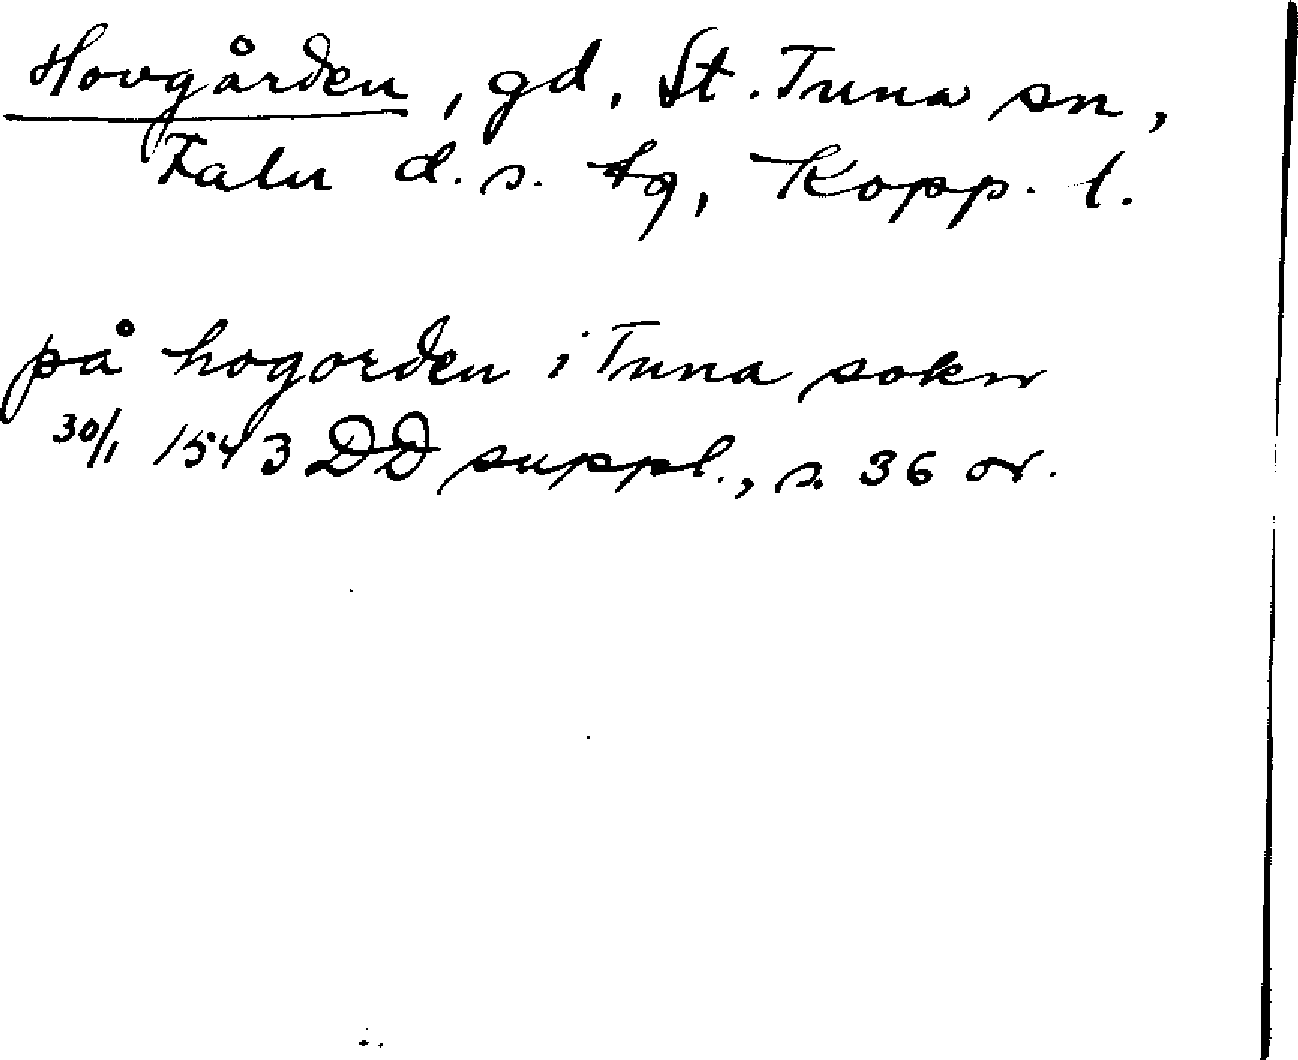 Hovgården, gd, St. Tuna sn,
Falu d.s. tg, Kopp. l.
på hogorden i Tuna sokn
30/1 1543 DD suppl., s. 36 or.